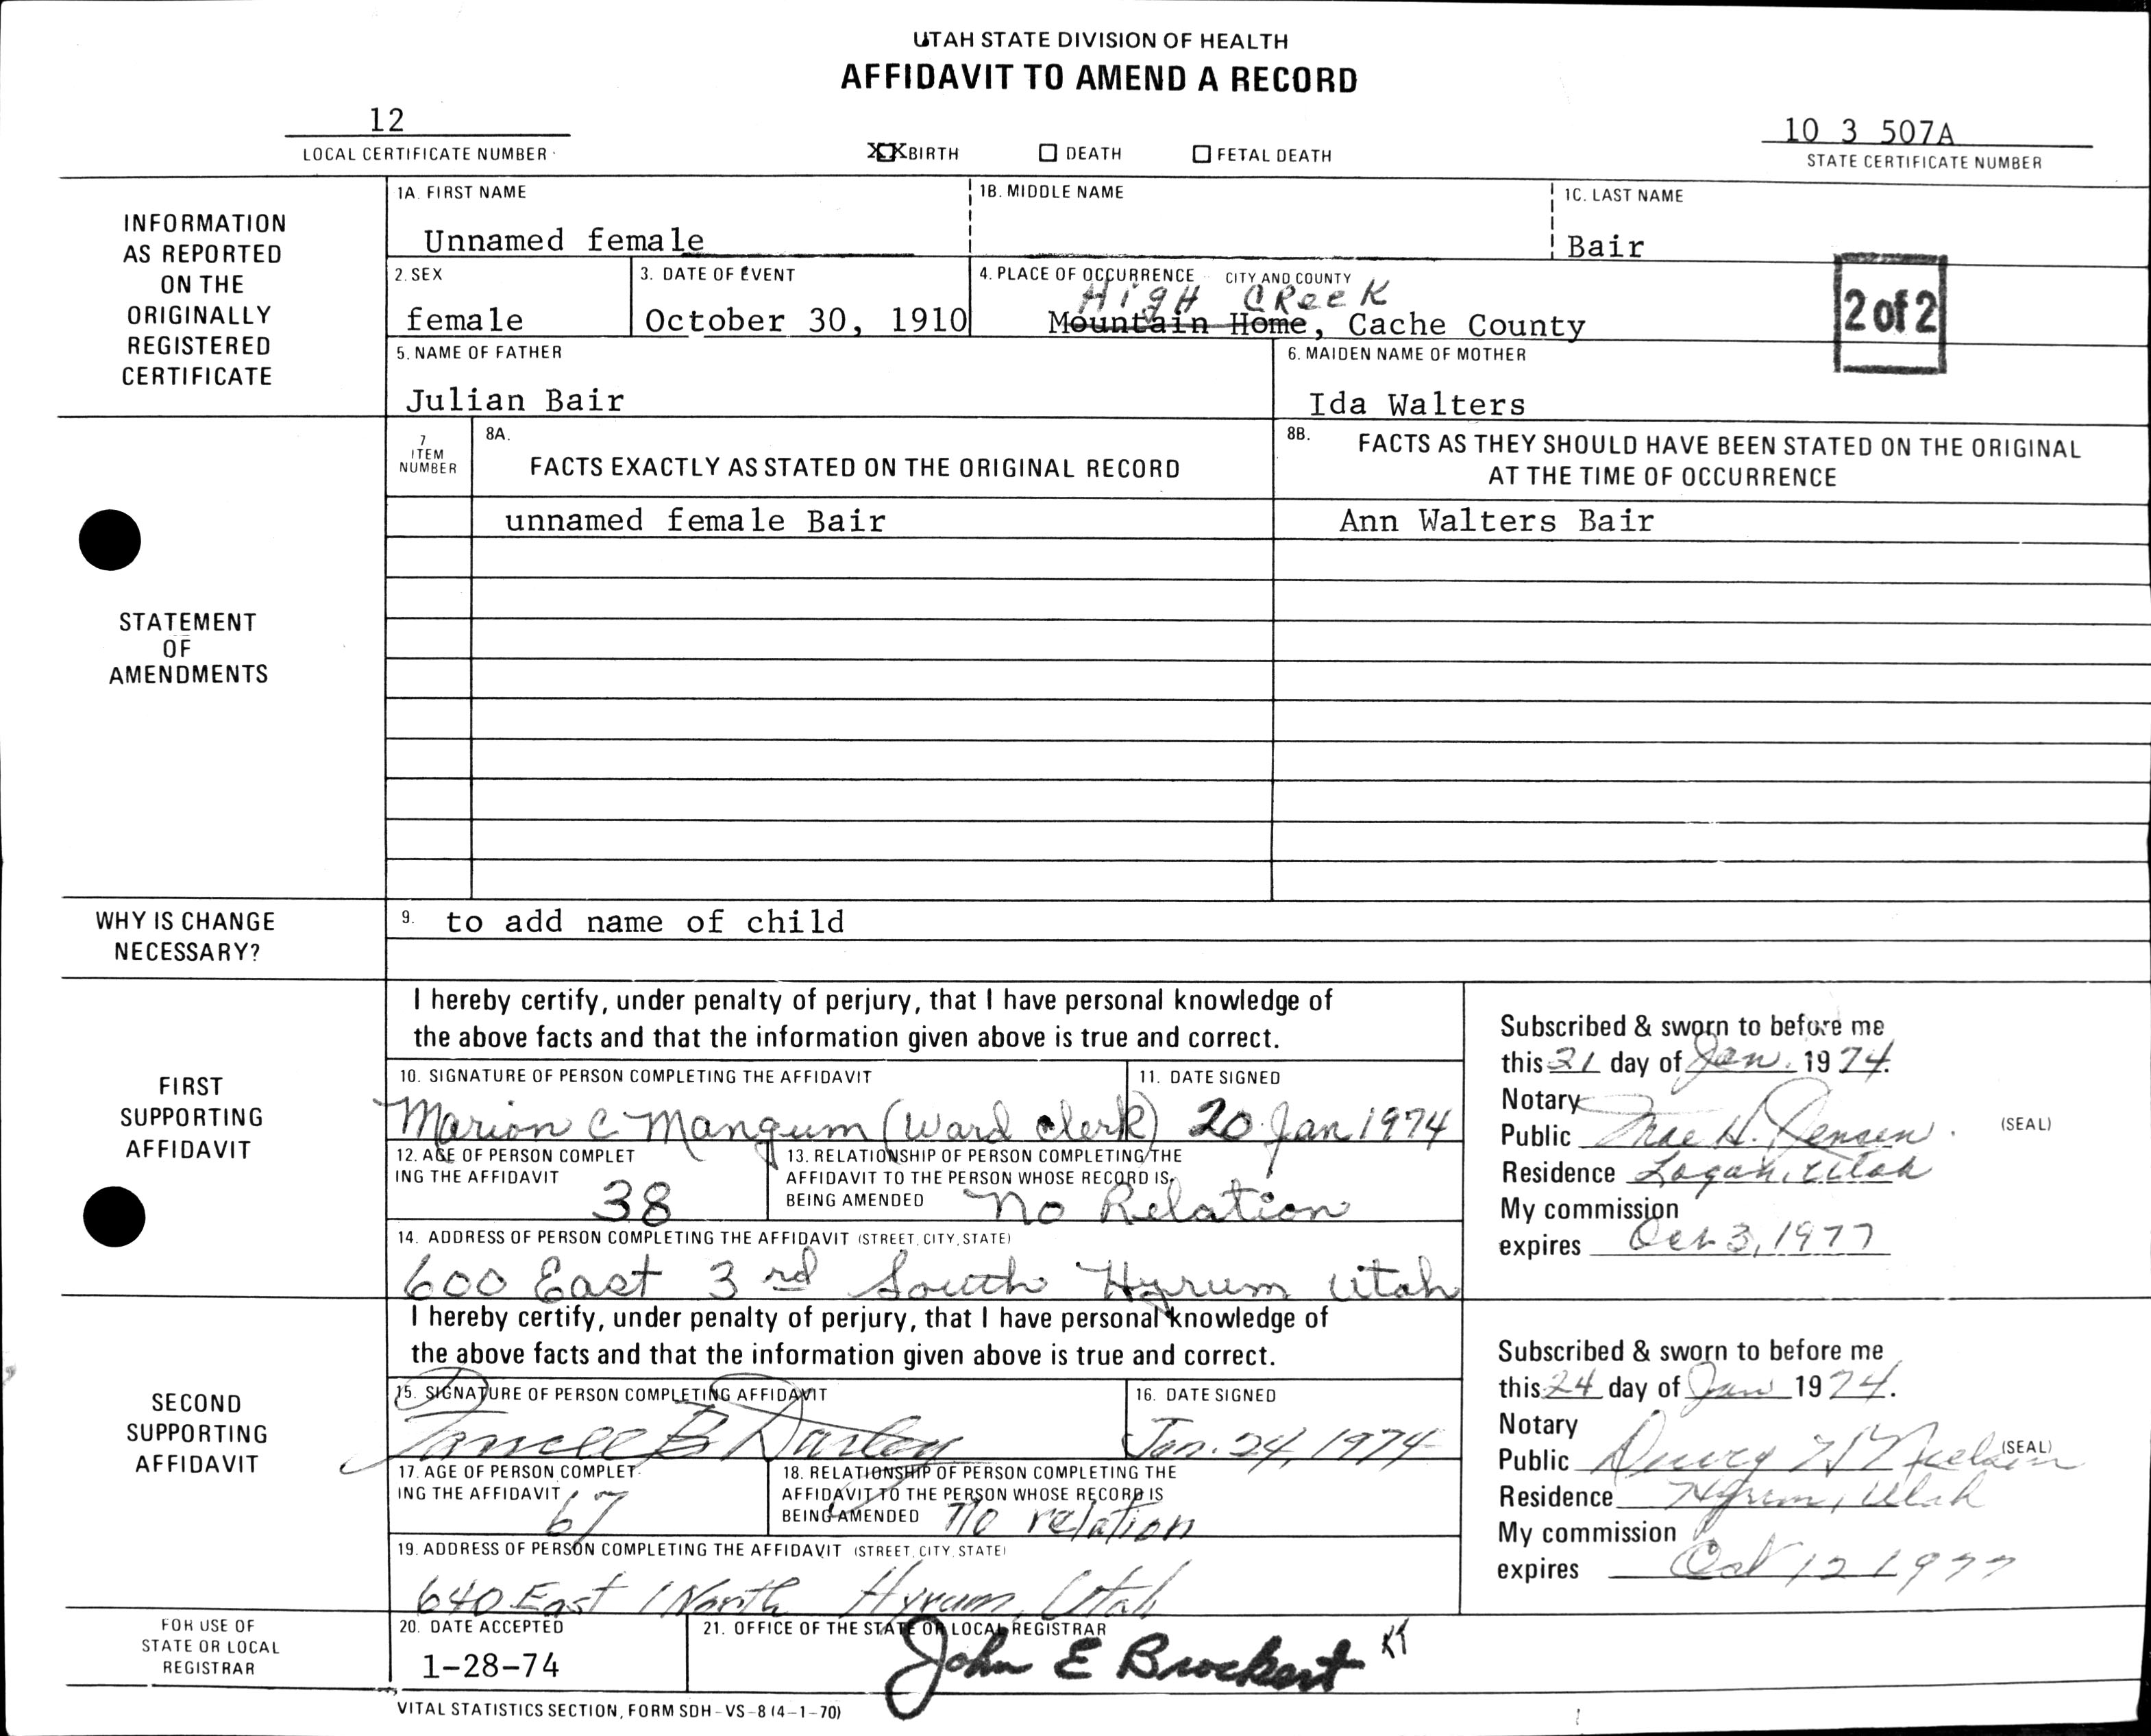 UTAH STATE DIVISION OF HEALTH
AFFIDAVIT TO AMEND A RECORD
12
LOCAL CERTIFICATE NUMBER
XX BIRTH
DEATH
FETAL DEATH
10 3 507A
STATE CERTIFICATE NUMBER
INFORMATION
AS REPORTED
ON THE
ORIGINALLY
REGISTERED
CERTIFICATE
1A. FIRST NAME
Unnamed female
1B. MIDDLE NAME
1C. LAST NAME
Bair
2. SEX
female
3. DATE OF EVENT
October 30, 1910
4. PLACE OF OCCURRENCE CITY AND COUNTY
HigH CReeK
Mountain Home, Cache County
2 of 2
5. NAME OF FATHER
Julian Bair
6. MAIDEN NAME OF MOTHER
Ida Walters
STATEMENT
OF
AMENDMENTS
7
ITEM
NUMBER
8A.
FACTS EXACTLY AS STATED ON THE ORIGINAL RECORD
8B.
FACTS AS THEY SHOULD HAVE BEEN STATED ON THE ORIGINAL
AT THE TIME OF OCCURRENCE
unnamed female Bair
Ann Walters Bair
WHY IS CHANGE
NECESSARY?
9. to add name of child
FIRST
SUPPORTING
AFFIDAVIT
I hereby certify, under penalty of perjury, that I have personal knowledge of
the above facts and that the information given above is true and correct.
10. SIGNATURE OF PERSON COMPLETING THE AFFIDAVIT
Marion C Mangum (Ward clerk)
11. DATE SIGNED
20 Jan 1974
12. AGE OF PERSON COMPLET
ING THE AFFIDAVIT
38
13. RELATIONSHIP OF PERSON COMPLETING THE
AFFIDAVIT TO THE PERSON WHOSE RECORD IS
BEING AMENDED no Relation
14. ADDRESS OF PERSON COMPLETING THE AFFIDAVIT (STREET, CITY, STATE)
600 East 3rd South Hyrum Utah
Subscribed & sworn to before me
this 21 day of Jan. 1974.
Notary
Public Mae H. Jensen
(SEAL)
Residence Logan, Utah
My commission
expires Oct 3, 1977
SECOND
SUPPORTING
AFFIDAVIT
I hereby certify, under penalty of perjury, that I have personal knowledge of
the above facts and that the information given above is true and correct.
15. SIGNATURE OF PERSON COMPLETING AFFIDAVIT
B Darley
16. DATE SIGNED
Jan. 24, 1974
17. AGE OF PERSON COMPLET-
ING THE AFFIDAVIT
67
18. RELATIONSHIP OF PERSON COMPLETING THE
AFFIDAVIT TO THE PERSON WHOSE RECORD IS
BEING AMENDED no relation
19. ADDRESS OF PERSON COMPLETING THE AFFIDAVIT (STREET, CITY, STATE)
640 East 1 North Hyrum, Utah
Subscribed & sworn to before me
this 24 day of Jan 1974.
Notary
Public H Nielsen
(SEAL)
Residence Hyrum, Utah
My commission
expires Oct 12 1977
FOR USE OF
STATE OR LOCAL
REGISTRAR
20. DATE ACCEPTED
1-28-74
21. OFFICE OF THE STATE OR LOCAL REGISTRAR
John E Brockert
VITAL STATISTICS SECTION, FORM SDH-VS-8 (4-1-70)